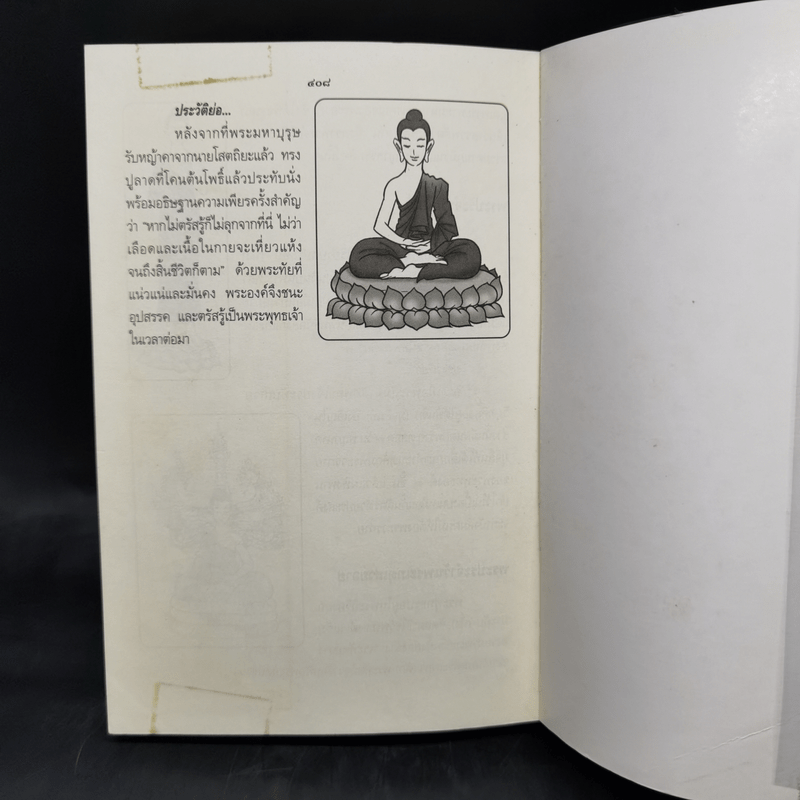 ๔๐๘
ประวัติย่อ...
หลังจากที่พระมหาบุรุษ
รับหญ้าคาจากนายโสตถิยะแล้ว ทรง
ปูลาดที่โคนต้นโพธิ์แล้วประทับนั่ง
พร้อมอธิษฐานความเพียรครั้งสำคัญ
ว่า "หากไม่ตรัสรู้ก็ไม่ลุกจากที่นี่ ไม่ว่า
เลือดและเนื้อในกายจะเหี่ยวแห้ง
จนถึงสิ้นชีวิตก็ตาม" ด้วยพระทัยที่
แน่วแน่และมั่นคง พระองค์จึงชนะ
อุปสรรค และตรัสรู้เป็นพระพุทธเจ้า
ในเวลาต่อมา